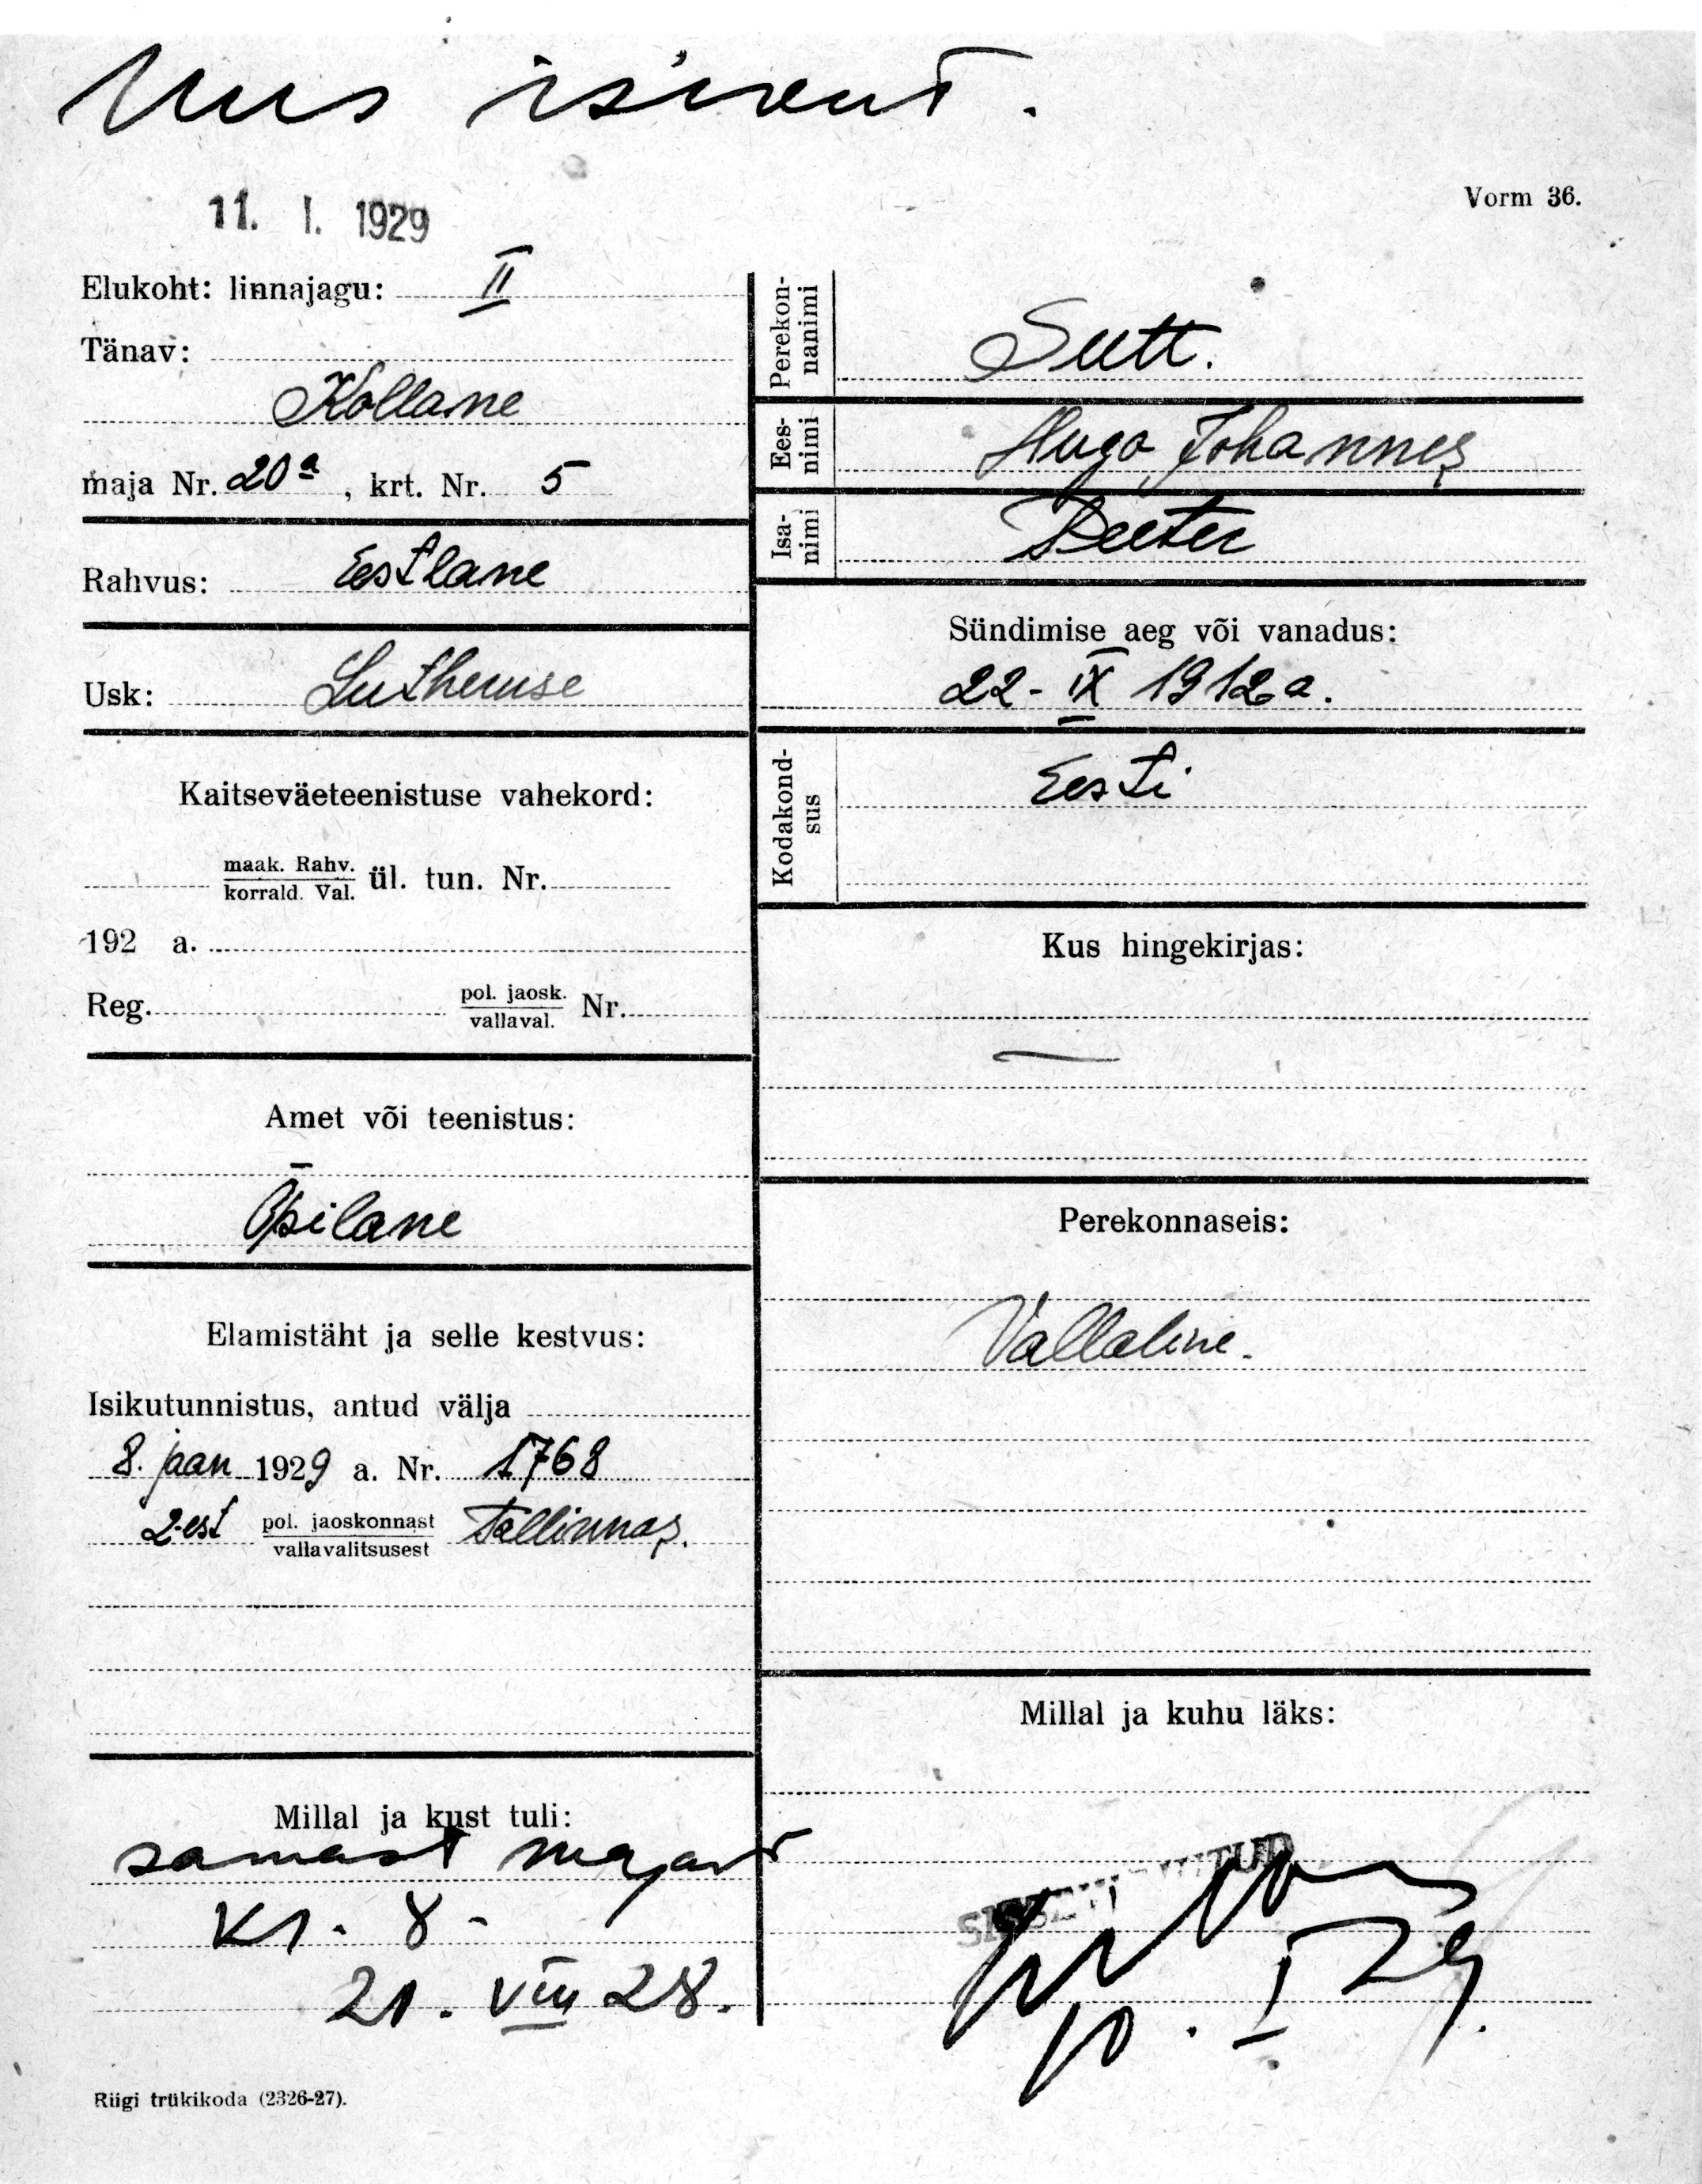 Uus isikut.
11. I. 1929
Vorm 36.
Elukoht: linnajagu: II
Tänav:
Kollane
maja Nr. 20a, krt. Nr. 5
Rahvus: Eestlane
Usk: Lutheruse
Kaitseväeteenistuse vahekord:
maak. Rahv.
korrald. Val. ül. tun. Nr.
192 a.
Reg. pol. jaosk.
vallaval. Nr.
Amet või teenistus:
Õpilane
Elamistäht ja selle kestvus:
Isikutunnistus, antud välja
8. jaan 1929 a. Nr. 1768
2-est pol. jaoskonnast Tallinnas.
vallavalitsusest
Millal ja kust tuli:
samast majast
kr. 8-
21. VIII 28.
Riigi trükikoda (2326-27).
Perekon-
nanimi
Sutt.
Ees-
nimi
Hugo, Johannes
Isa-
nimi
Peeter
Sündimise aeg või vanadus:
22-IX 1912 a.
Kodakond-
sus
Eesti
Kus hingekirjas:
Perekonnaseis:
Vallaline.
Millal ja kuhu läks:
10. I 29.